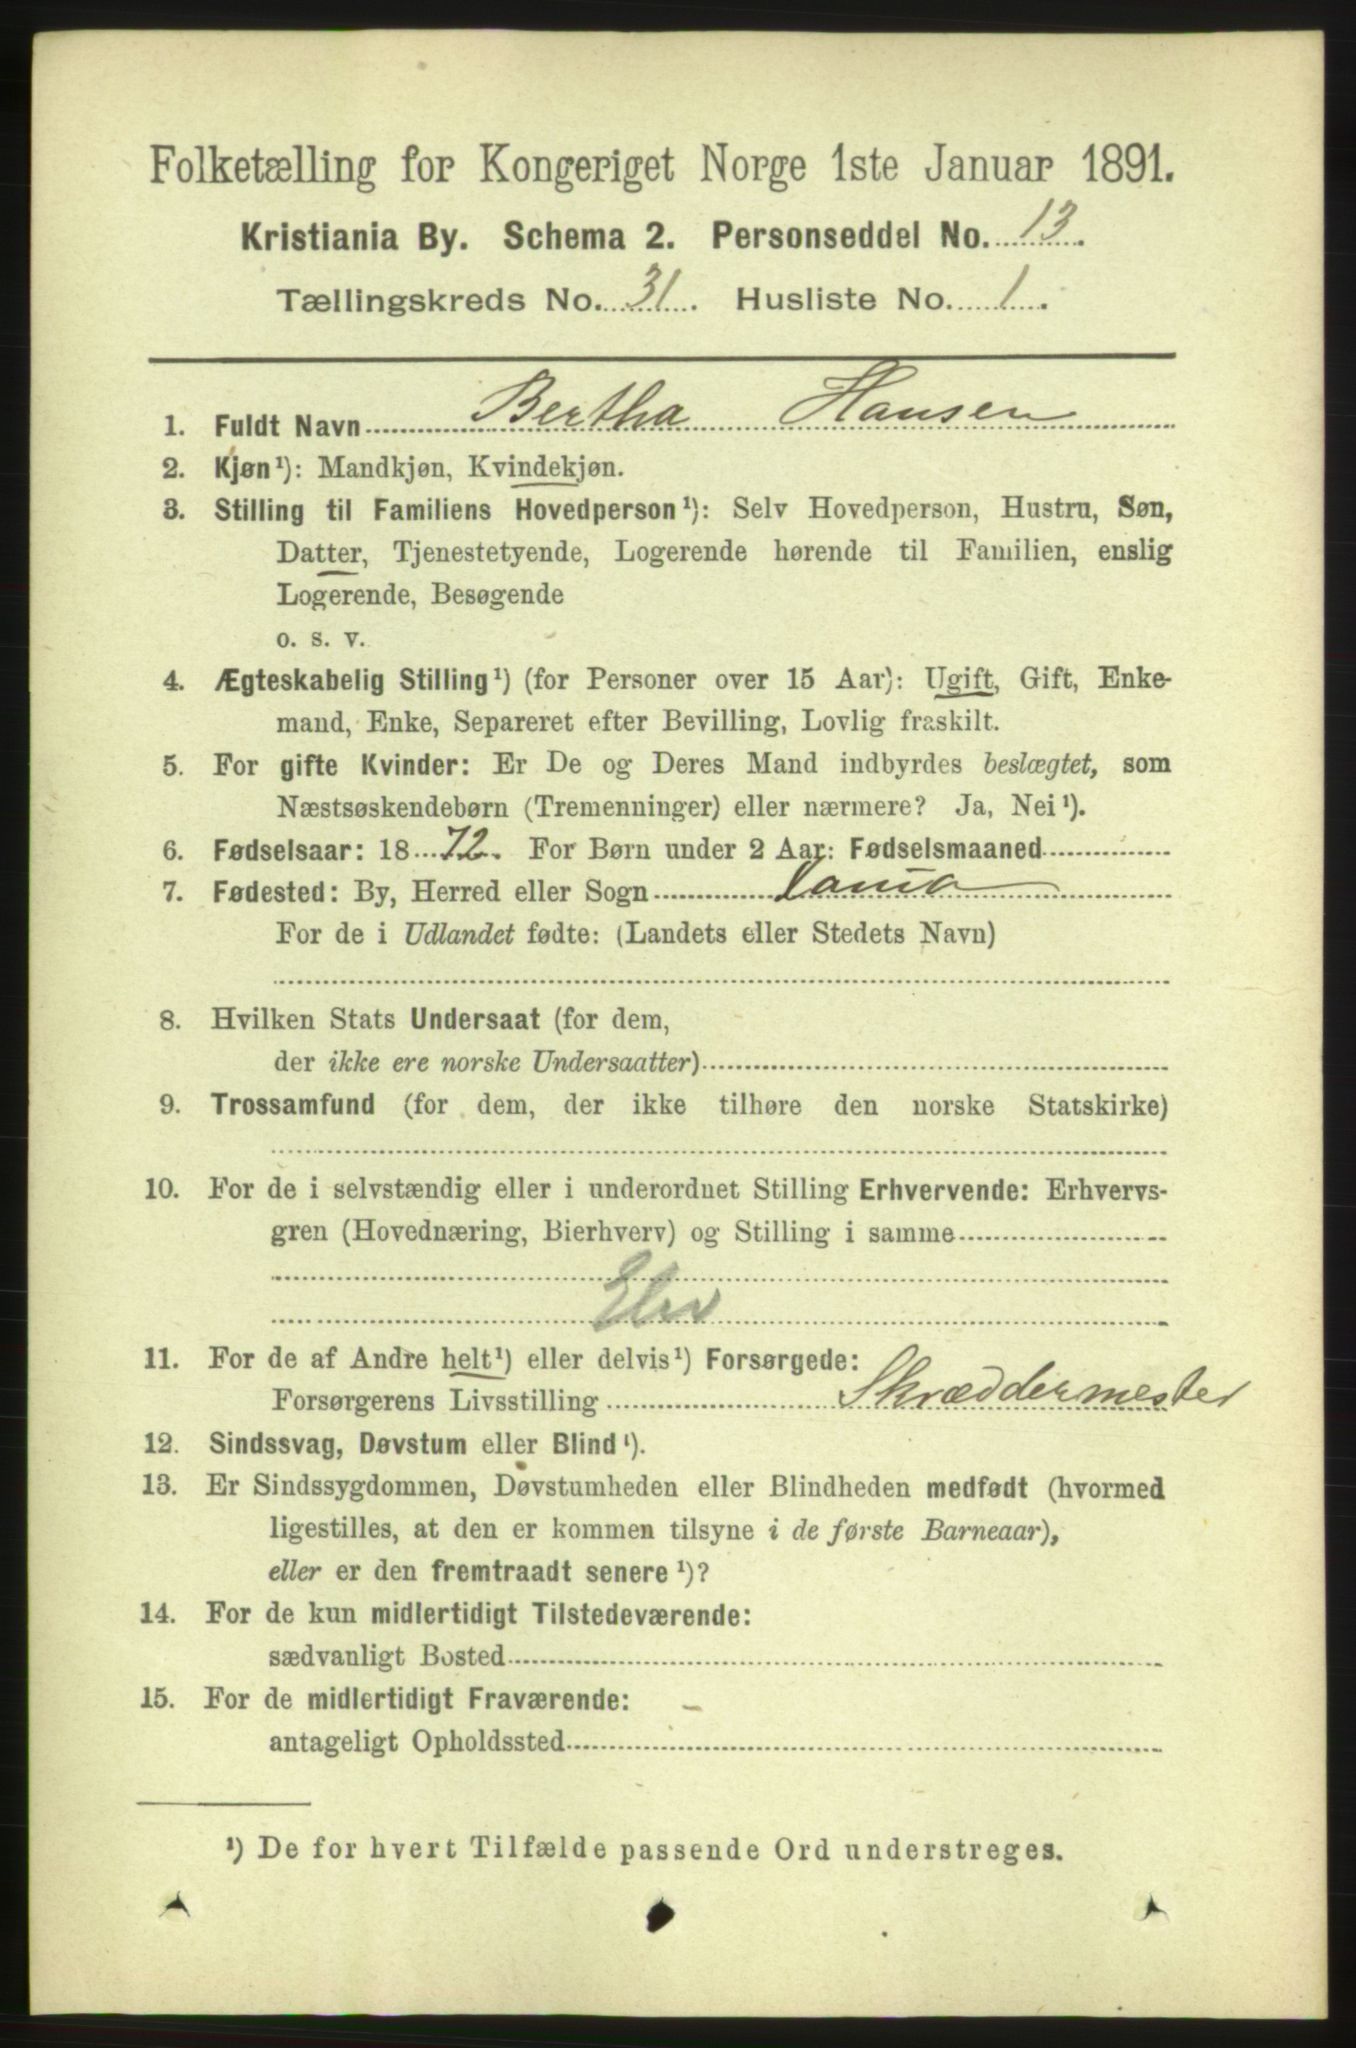 Folketælling for Kongeriget Norge 1ste Januar 1891.
Kristiania By. Schema 2. Personseddel No. 13.
Tællingskreds No. 31. Husliste No. 1.
1. Fuldt Navn Bertha Hansen
2. Kjøn¹): Mandkjøn, Kvindekjøn.
3. Stilling til Familiens Hovedperson¹): Selv Hovedperson, Hustru, Søn,
Datter, Tjenestetyende, Logerende hørende til Familien, enslig
Logerende, Besøgende
o. s. v.
4. Ægteskabelig Stilling¹) (for Personer over 15 Aar): Ugift, Gift, Enke-
mand, Enke, Separeret efter Bevilling, Lovlig fraskilt.
5. For gifte Kvinder: Er De og Deres Mand indbyrdes beslægtet, som
Næstsøskendebørn (Tremenninger) eller nærmere? Ja, Nei¹).
6. Fødselsaar: 1872. For Børn under 2 Aar: Fødselsmaaned
7. Fødested: By, Herred eller Sogn Xania
For de i Udlandet fødte: (Landets eller Stedets Navn)
8. Hvilken Stats Undersaat (for dem,
der ikke ere norske Undersaatter)
9. Trossamfund (for dem, der ikke tilhøre den norske Statskirke)
10. For de i selvstændig eller i underordnet Stilling Erhvervende: Erhvervs-
gren (Hovednæring, Bierhverv) og Stilling i samme
Elev
11. For de af Andre helt¹) eller delvis¹) Forsørgede:
Forsørgerens Livsstilling Skræddermester
12. Sindssvag, Døvstum eller Blind¹).
13. Er Sindssygdommen, Døvstumheden eller Blindheden medfødt (hvormed
ligestilles, at den er kommen tilsyne i de første Barneaar),
eller er den fremtraadt senere¹)?
14. For de kun midlertidigt Tilstedeværende:
sædvanligt Bosted
15. For de midlertidigt Fraværende:
antageligt Opholdssted
¹) De for hvert Tilfælde passende Ord understreges.